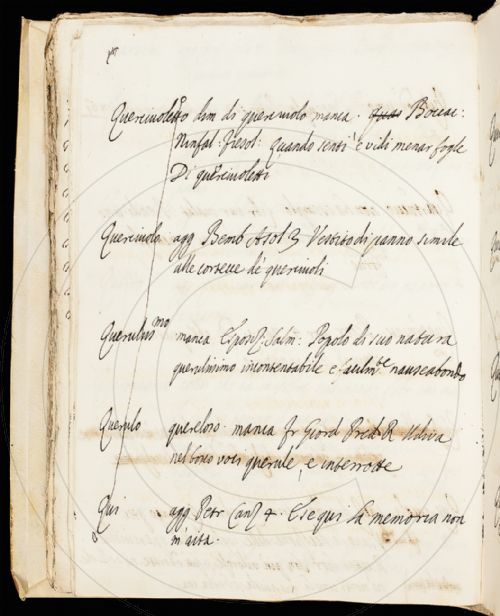 Querciuoletto dim di querciuolo manca. quas Boccac:
Ninfal: Fiesol: Quando senti e vidi menar foglie
Di querciuoletti
Querciuolo agg Bemb Asol 3 Vestito di panno simile
alle cortecce de querciuoli
Querulissmo manca Espoz. Salm: Popolo di suo natura
querulissimo incontentabile e facilmte nauseabondo
Querulo quereloso. manca Fr Giord Pred R Udiva
nel bosco voci querule, e interrotte
Qui agg Petr Canz 4. E se qui la memoria non
m'aita.